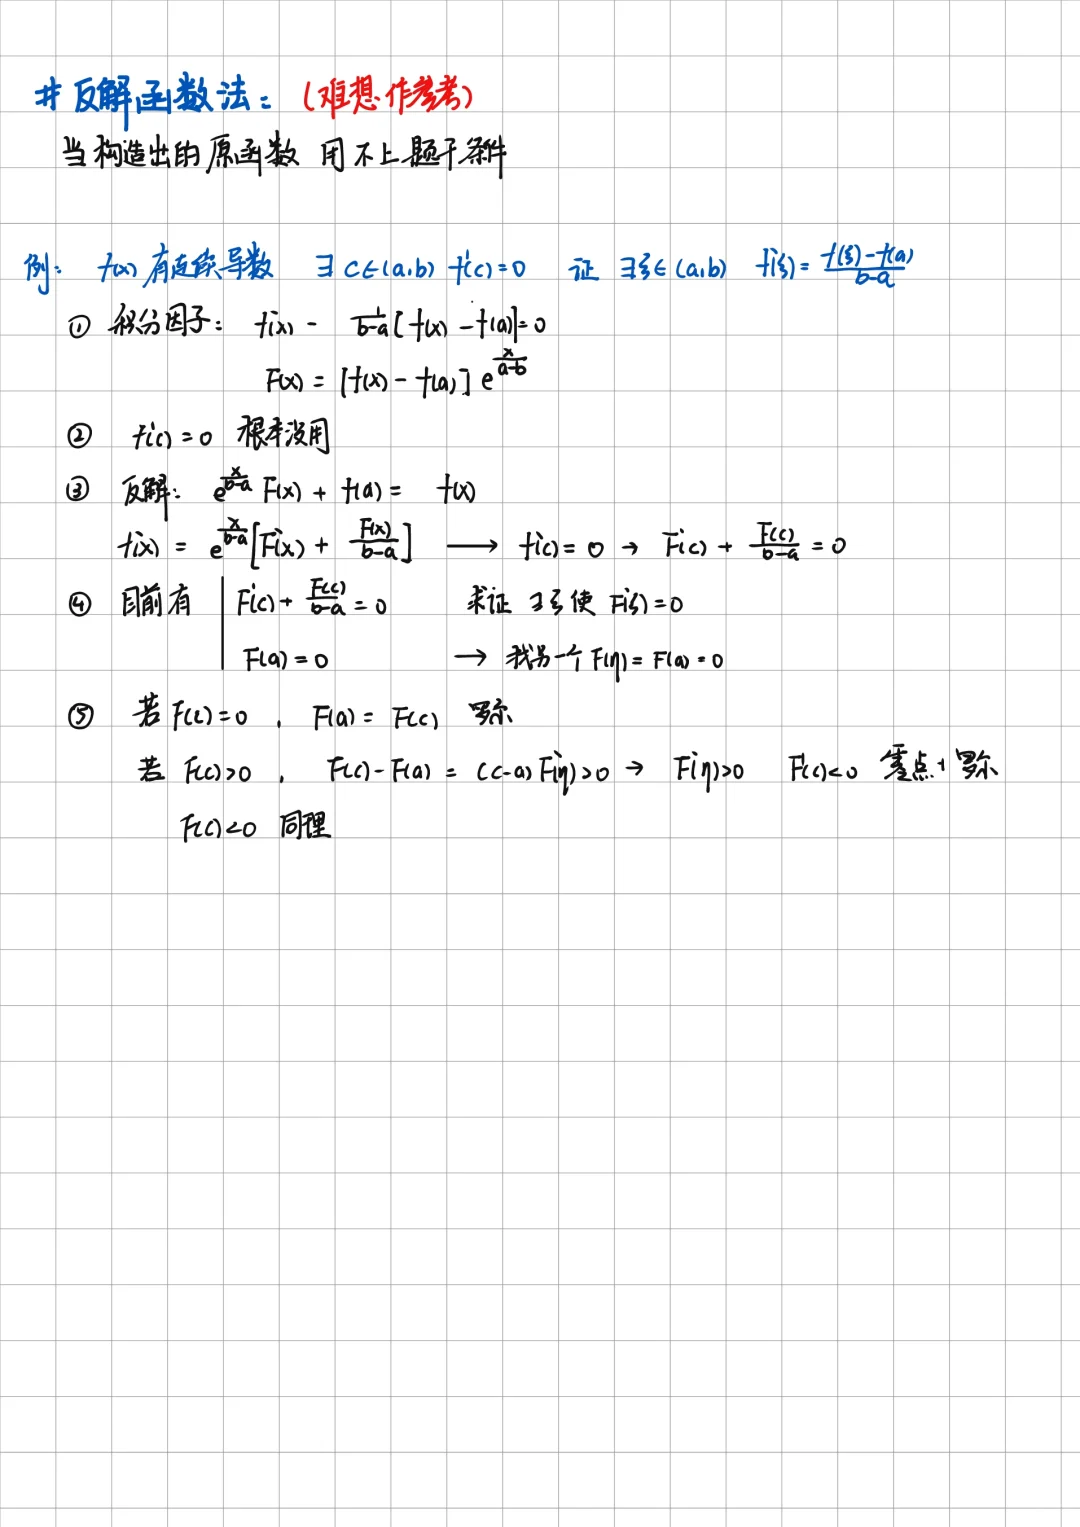 # 反解函数法：(难想 作参考)
当构造出的原函数 用不上题干条件
例： f(x) 有连续导数 ∃ c∈(a,b) f'(c)=0 证 ∃ξ∈(a,b) f'(ξ)=\frac{f(ξ)-f(a)}{b-a}
① 积分因子： f'(x) - \frac{1}{b-a}[f(x)-f(a)]=0
F(x) = [f(x)-f(a)] e^{\frac{x}{a-b}}
② f'(c)=0 根本没用
③ 反解： e^{\frac{x}{b-a}} F(x) + f(a) = f(x)
f'(x) = e^{\frac{x}{b-a}}[F'(x) + \frac{F(x)}{b-a}] ⟶ f'(c) = 0 → F'(c) + \frac{F(c)}{b-a} = 0
④ 目前有 | F'(c) + \frac{F(c)}{b-a} = 0 求证 ∃ξ使 F'(ξ)=0
F(a) = 0 → 找另一个 F(η) = F(a) = 0
⑤ 若 F(c)=0 , F(a) = F(c) 罗尔
若 F(c)>0 , F(c)-F(a) = (c-a) F'(η)>0 → F'(η)>0 F'(c)<0 零点+罗尔
F(c)<0 同理